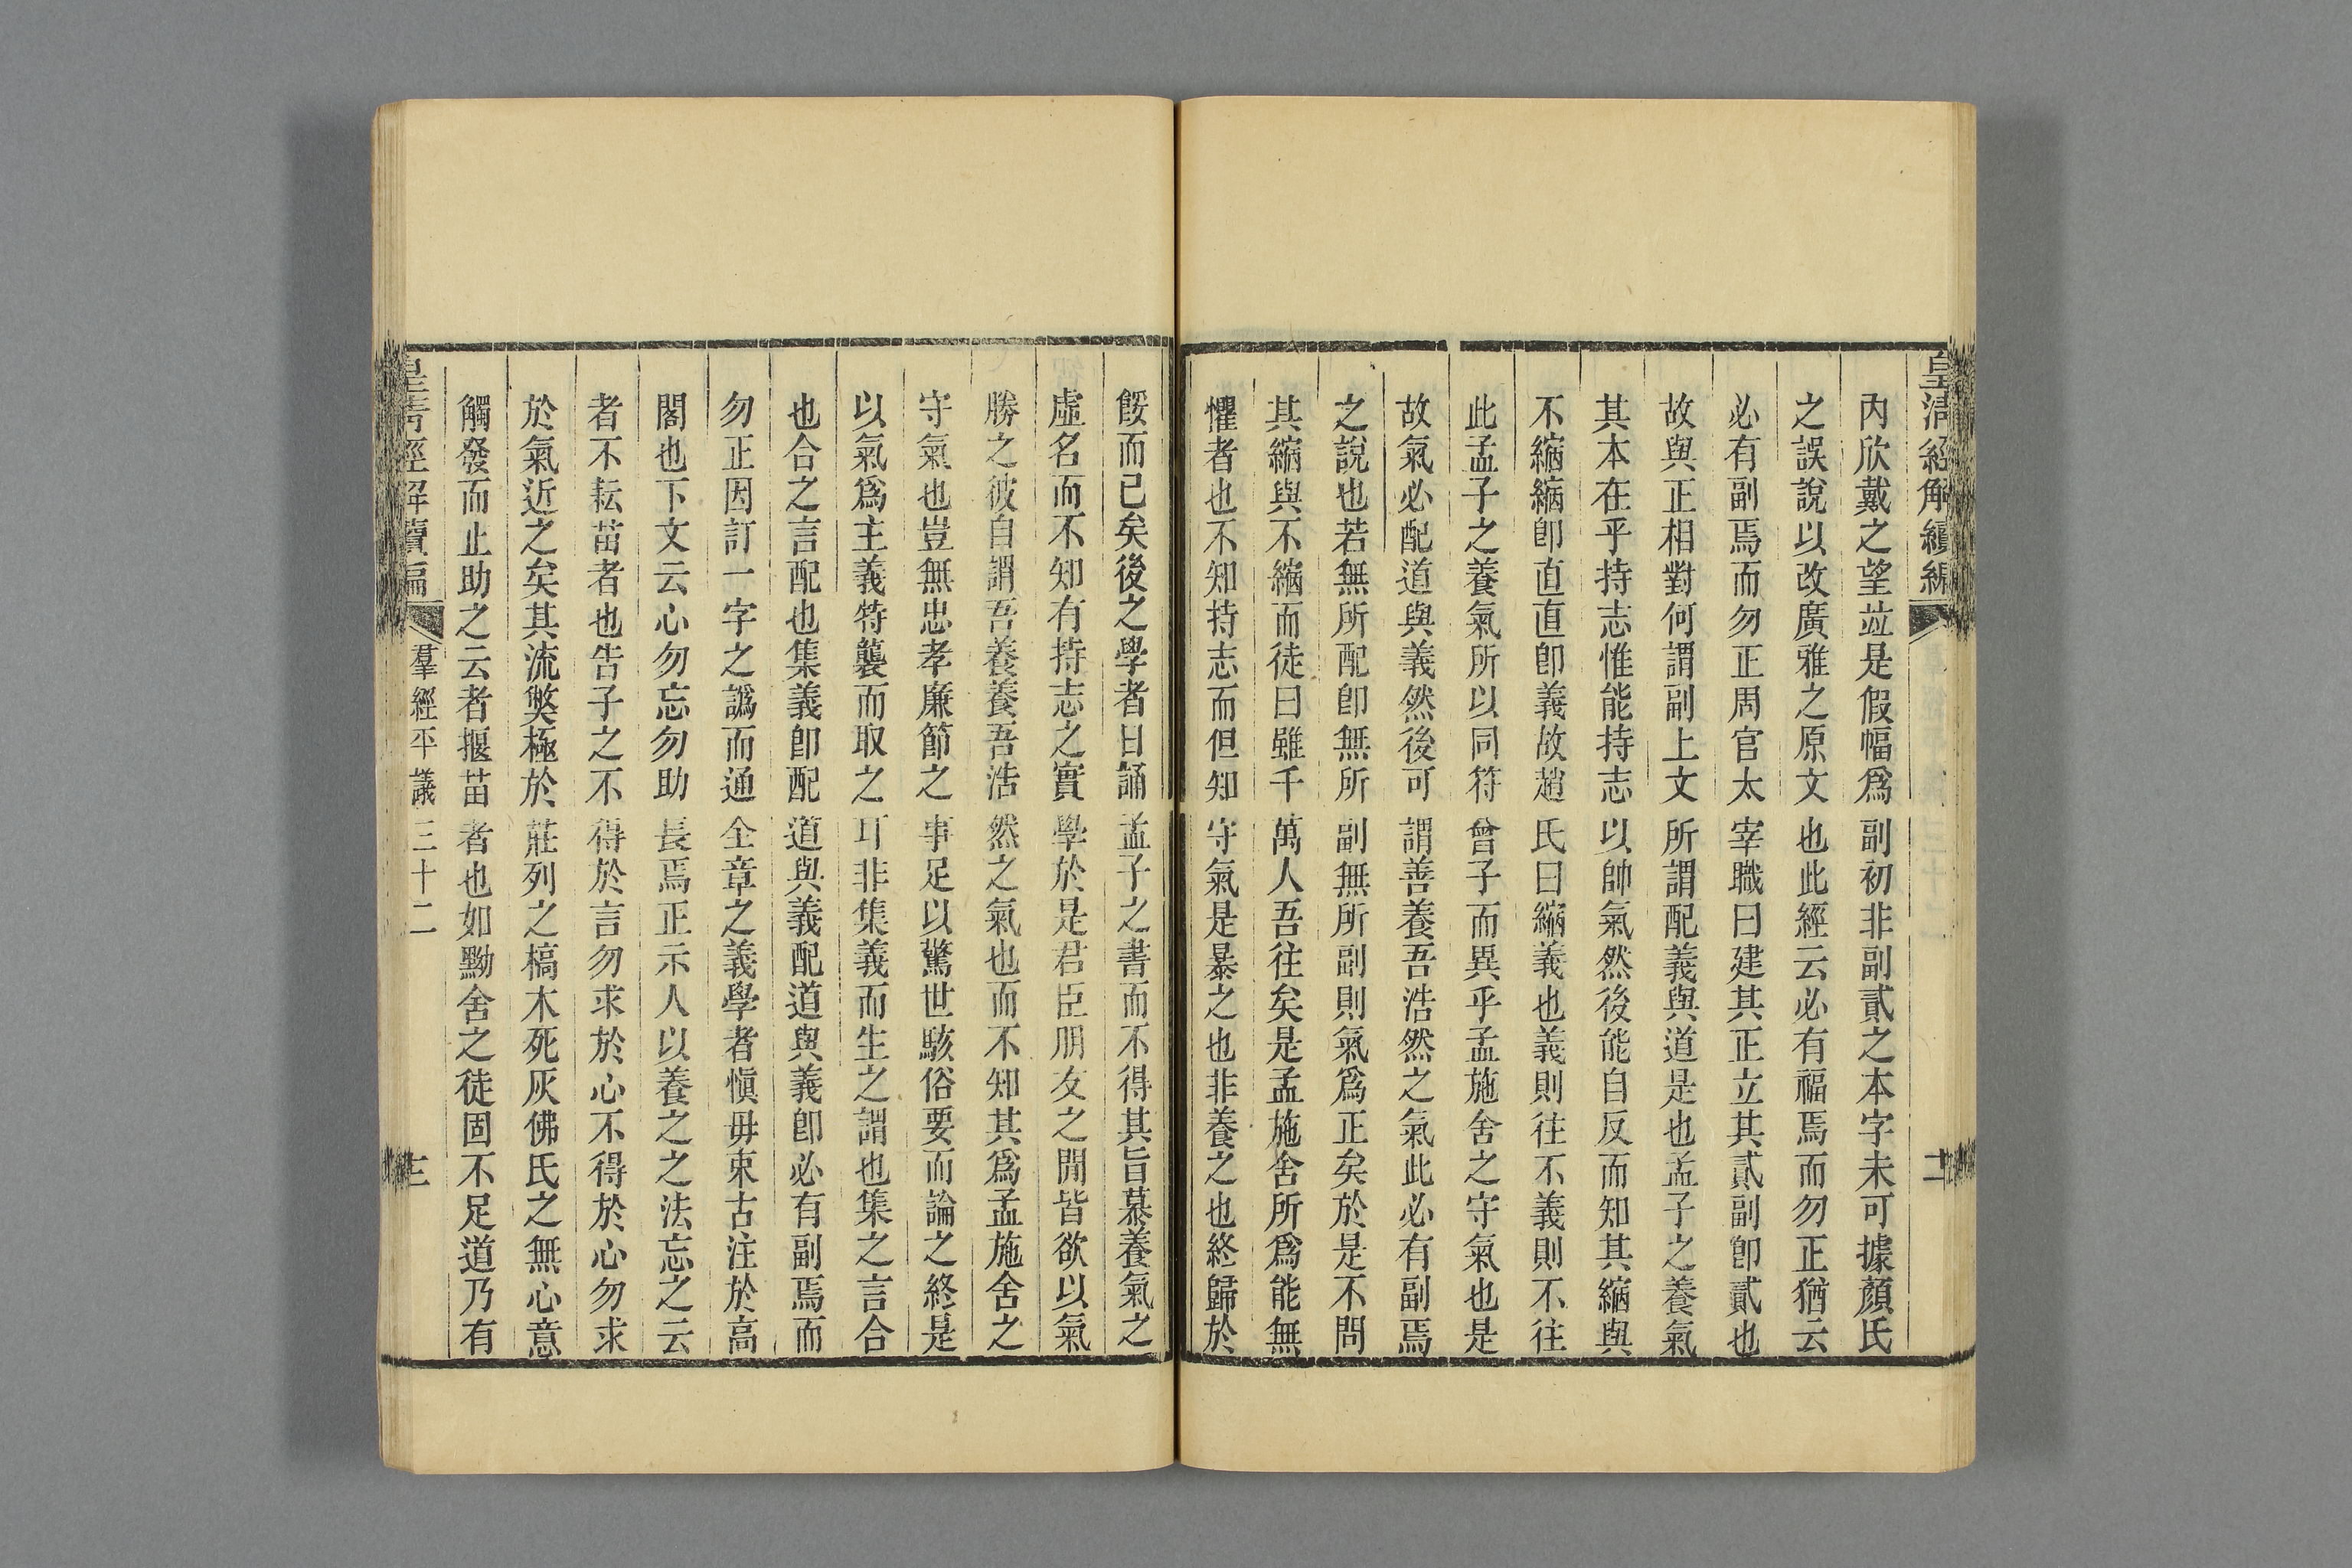 皇清經解續編
二
內欣戴之望竝是假幅爲副初非副貳之本字未可據顏氏
之誤說以改廣雅之原文也此經云必有福焉而勿正猶云
必有副焉而勿正周官太宰職曰建其正立其貳副卽貳也
故與正相對何謂副上文所謂配義與道是也孟子之養氣
其本在乎持志惟能持志以帥氣然後能自反而知其縮與
不縮縮卽直直卽義故趙氏曰縮義也義則往不義則不往
此孟子之養氣所以同符曾子而異乎孟施舍之守氣也是
故氣必配道與義然後可謂善養吾浩然之氣此必有副焉
之說也若無所配卽無所副無所副則氣爲正矣於是不問
其縮與不縮而徒曰雖千萬人吾往矣是孟施舍所爲能無
懼者也不知持志而但知守氣是暴之也非養之也終歸於
餒而已矣後之學者日誦孟子之書而不得其旨慕養氣之
虛名而不知有持志之實學於是君臣朋友之閒皆欲以氣
勝之彼自謂吾養養吾浩然之氣也而不知其爲孟施舍之
守氣也豈無忠孝廉節之事足以驚世駭俗要而論之終是
以氣爲主義特襲而取之耳非集義而生之謂也集之言合
也合之言配也集義卽配道與義配道與義卽必有副焉而
勿正因訂一字之譌而通全章之義學者愼毋束古注於高
閣也下文云心勿忘勿助長焉正示人以養之之法忘之云
者不耘苗者也告子之不得於言勿求於心不得於心勿求
於氣近之矣其流獘極於莊列之槁木死灰佛氏之無心意
觸發而止助之云者揠苗者也如黝舍之徒固不足道乃有
皇清經解續編
羣經平議三十二
三